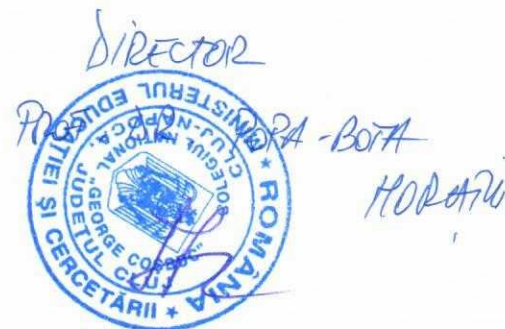 DIRECTOR
PROF DR POPA-BOTA
HORAȚIU
ROMÂNIA * MINISTERUL EDUCAȚIEI ȘI CERCETĂRII *
COLEGIUL NAȚIONAL
"GEORGE COȘBUC"
CLUJ-NAPOCA,
JUDEȚUL CLUJ